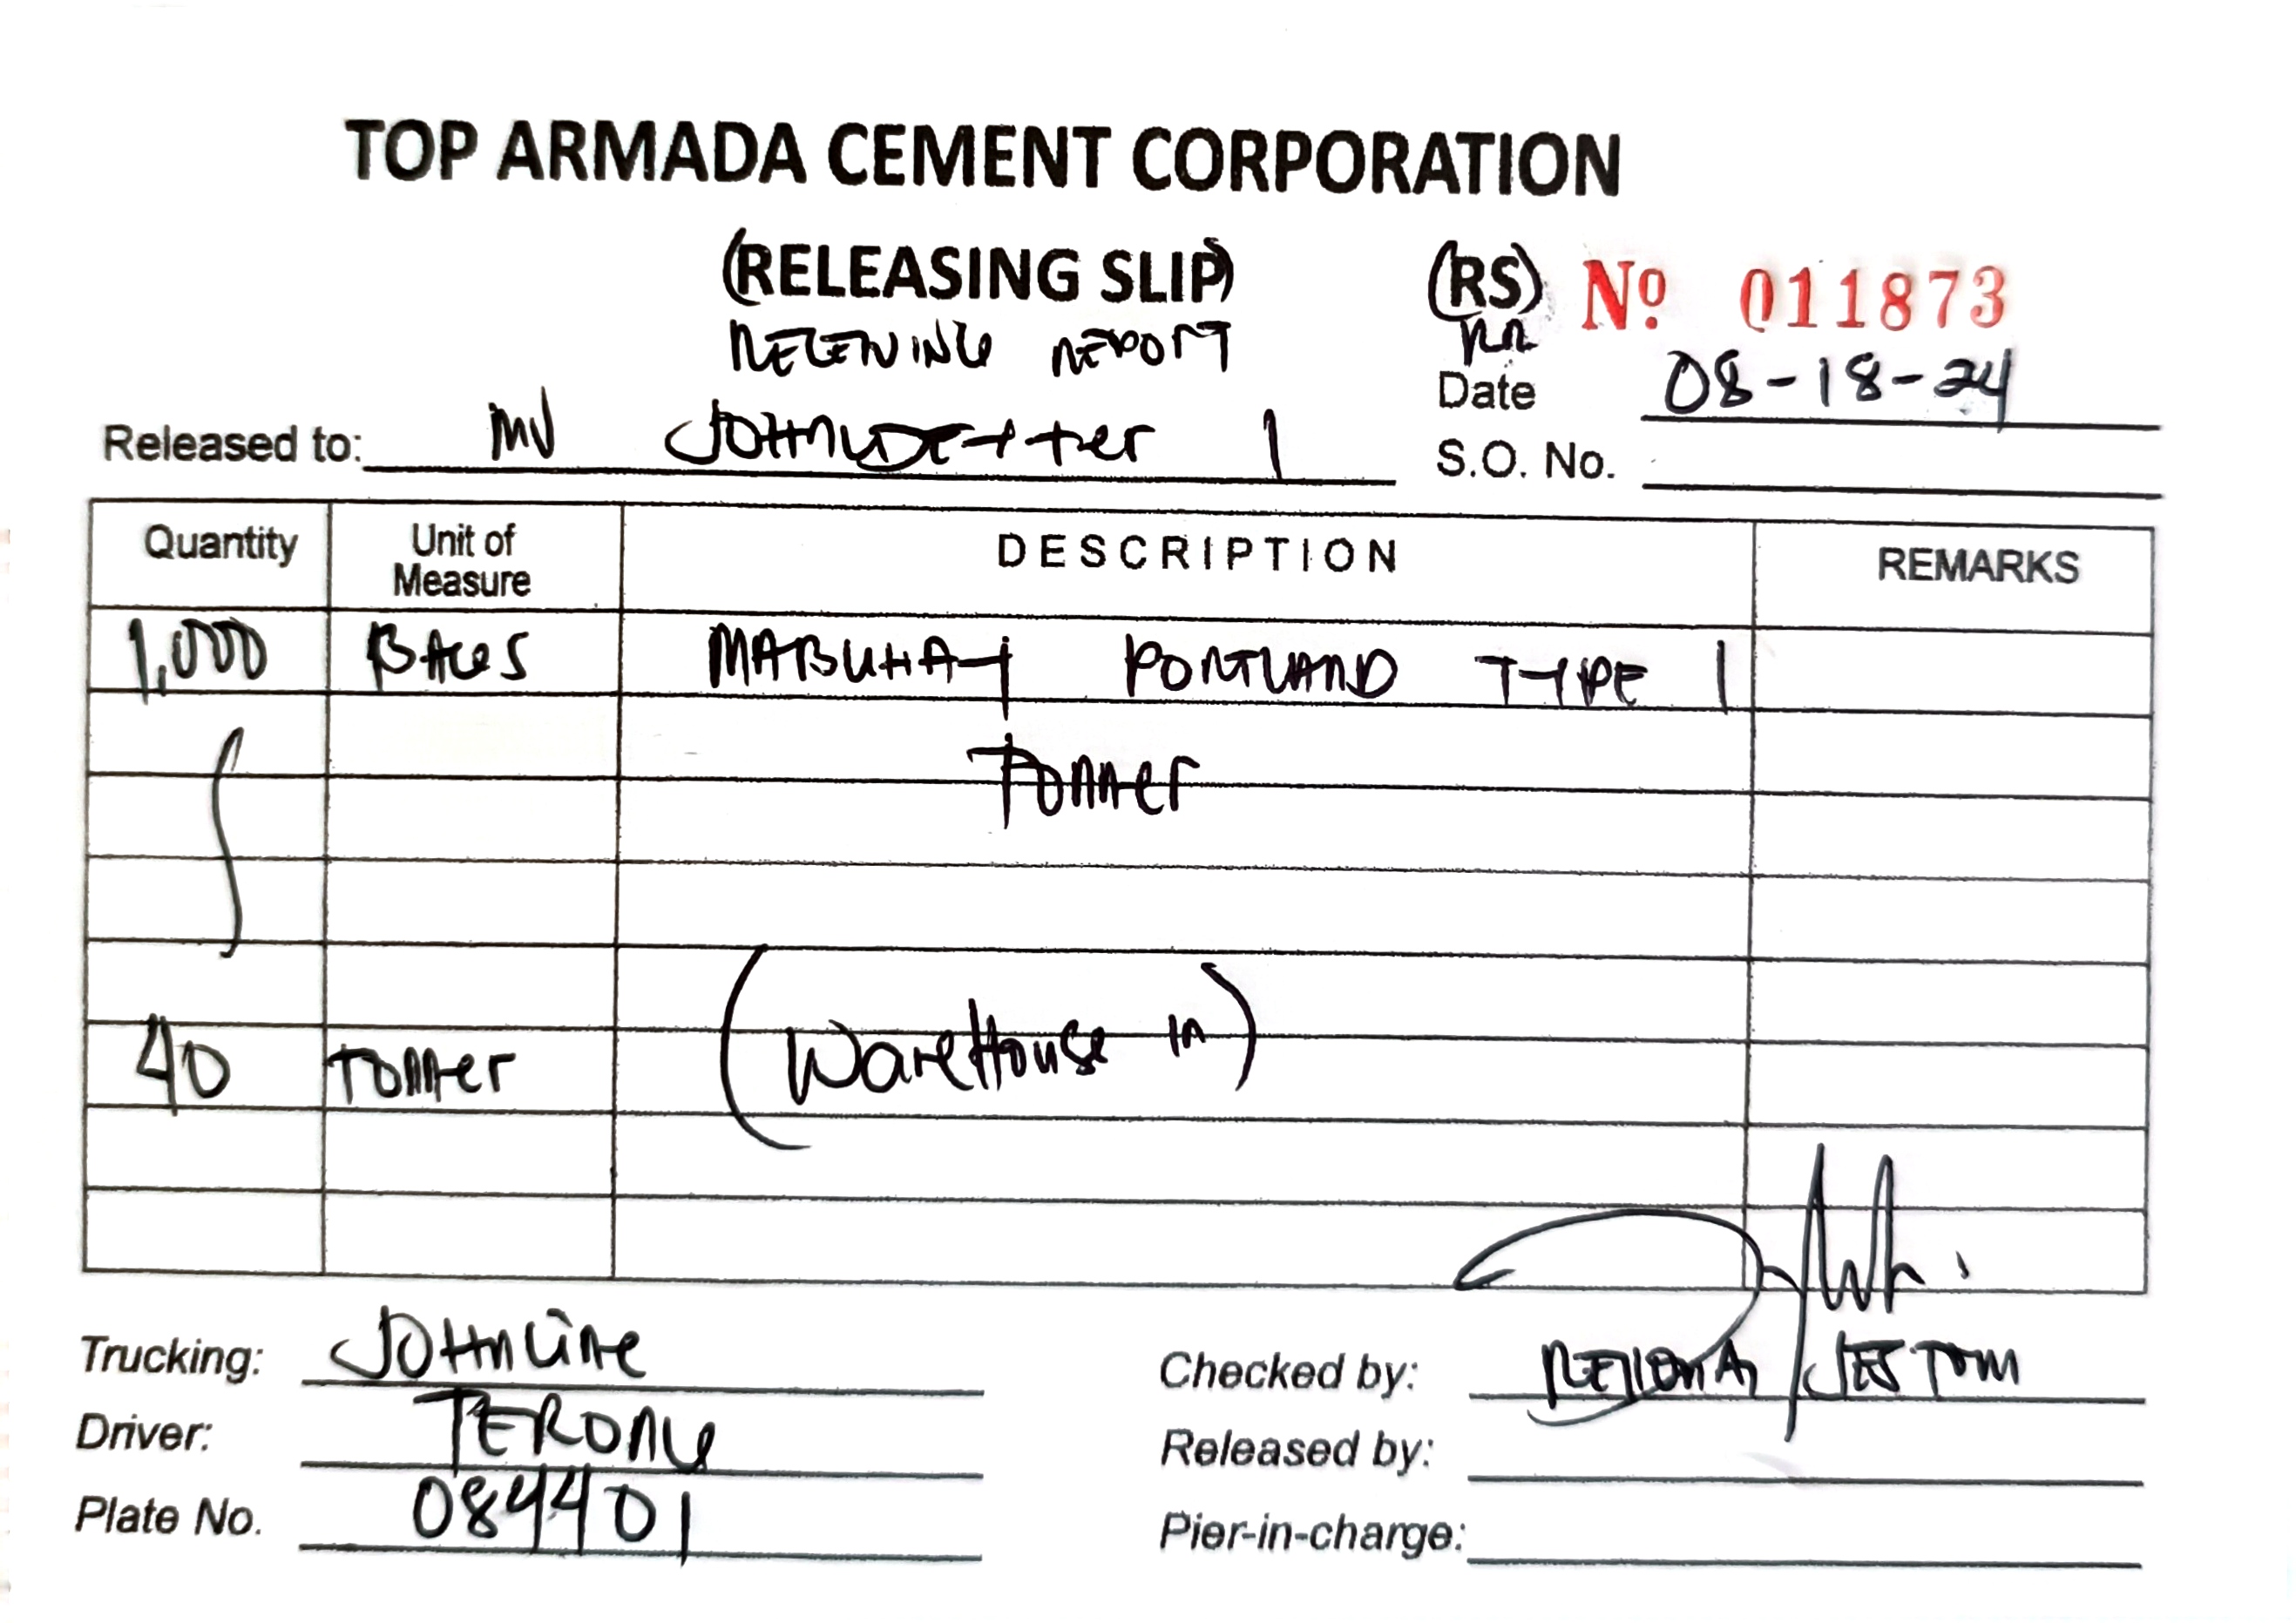 TOP ARMADA CEMENT CORPORATION
(RELEASING SLIP) (RS) Nº 011873
RECEIVING REPORT RR
Date 08-18-24
Released to: MV 1
S.O. No.
Quantity Unit of Measure DESCRIPTION REMARKS
1,000 BAGS MABUHAY PORTLAND TYPE 1
Tonner
40 Tonner (WareHouse in)
Trucking: JOHNLINE
Checked by: / JESTOM
Driver: TERONG
Released by:
Plate No. 084401
Pier-in-charge: